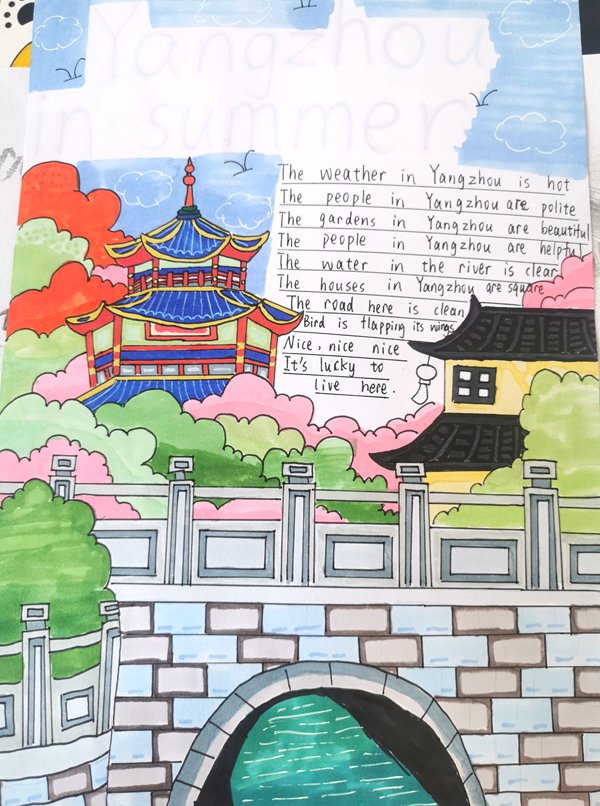 Yangzhou
in summer
The weather in Yangzhou is hot
The people in Yangzhou are polite
The gardens in Yangzhou are beautiful
The people in Yangzhou are helpful
The water in the river is clear
The houses in Yangzhou are square
The road here is clean
Bird is flapping its wings
Nice, nice nice
It's lucky to
live here.